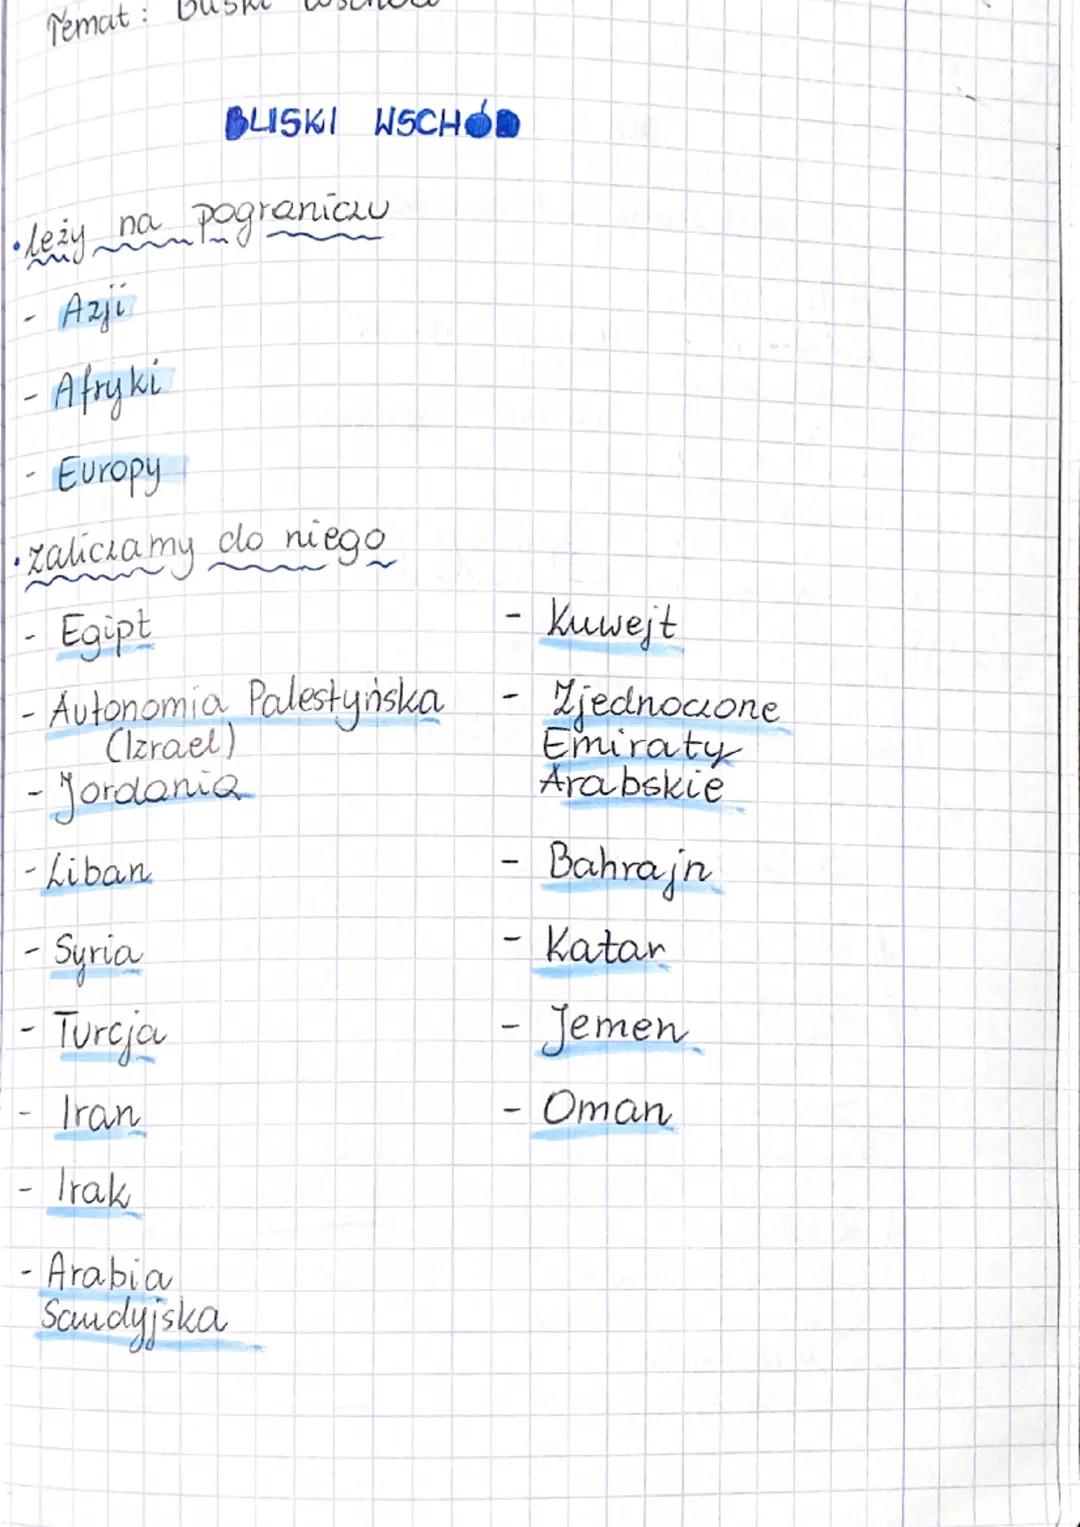 Temat: Bliski Wschód
BLISKI WSCHÓD
•leży na pograniczu
- Azji
- Afryki
- Europy
•zaliczamy do niego
- Egipt
- Autonomia Palestyńska
(Izrael)
- Jordania
- Liban
- Syria
- Turcja
- Iran
- Irak
- Arabia
Saudyjska
- Kuwejt
- Zjednoczone
Emiraty
Arabskie
- Bahrajn
- Katar
- Jemen
- Oman